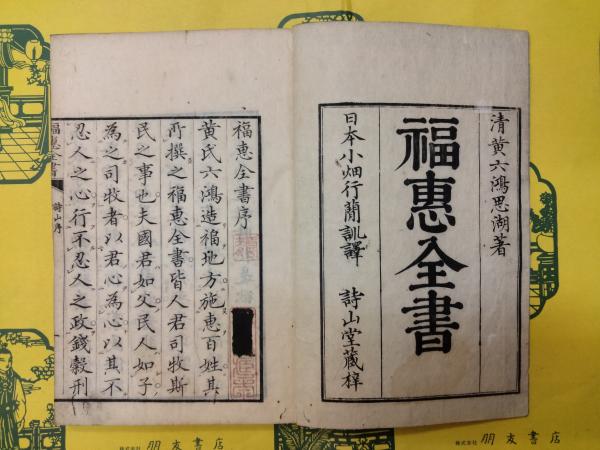 清黄六鴻思湖著
福惠全書
日本小畑行蕳訓譯　詩山堂蔵梓
福惠全書序
黄氏六鴻造福地方施惠百姓其
所撰之福惠全書皆人君司牧斯
民之事也夫國君如父民人如子
為之司牧者以君心為心以其不
忍人之心行不忍人之政錢穀刑
福惠全書
詩山序
株式会社 朋友書店
株式会社 朋友書店